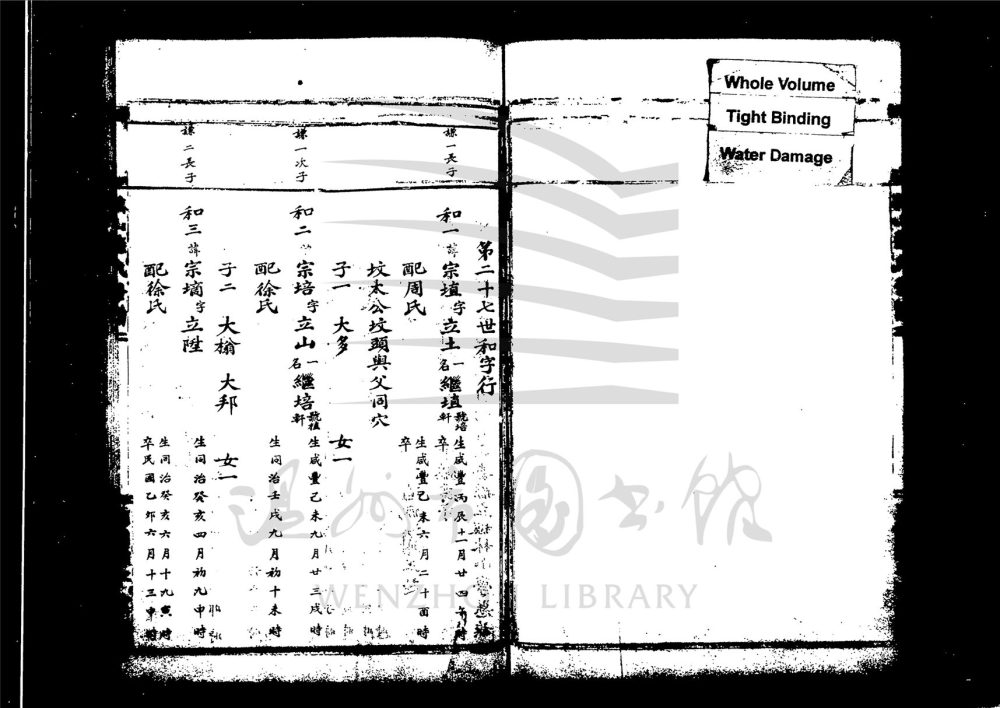 Whole Volume
Tight Binding
Water Damage
第二十七世和字行
謙一長子
和一 諱宗埴字立土一名繼埴號培軒 生咸豐丙辰十一月廿四午時
卒
配周氏 生咸豐己未六月二十酉時
卒
坟太公坟頭與父同穴
子一 大多 女一
謙一次子
和二 宗培字立山一名繼培號植軒 生咸豐己未九月廿三戌時
配徐氏 生同治壬戌九月初十未時
子二 大榆 大邦 女一
謙二長子
和三 諱宗墒字立陞 生同治癸亥四月初九申時
配徐氏 生同治癸亥六月十九寅時
卒民國乙卯六月十三申時
温州图书馆
WENZHOU LIBRARY